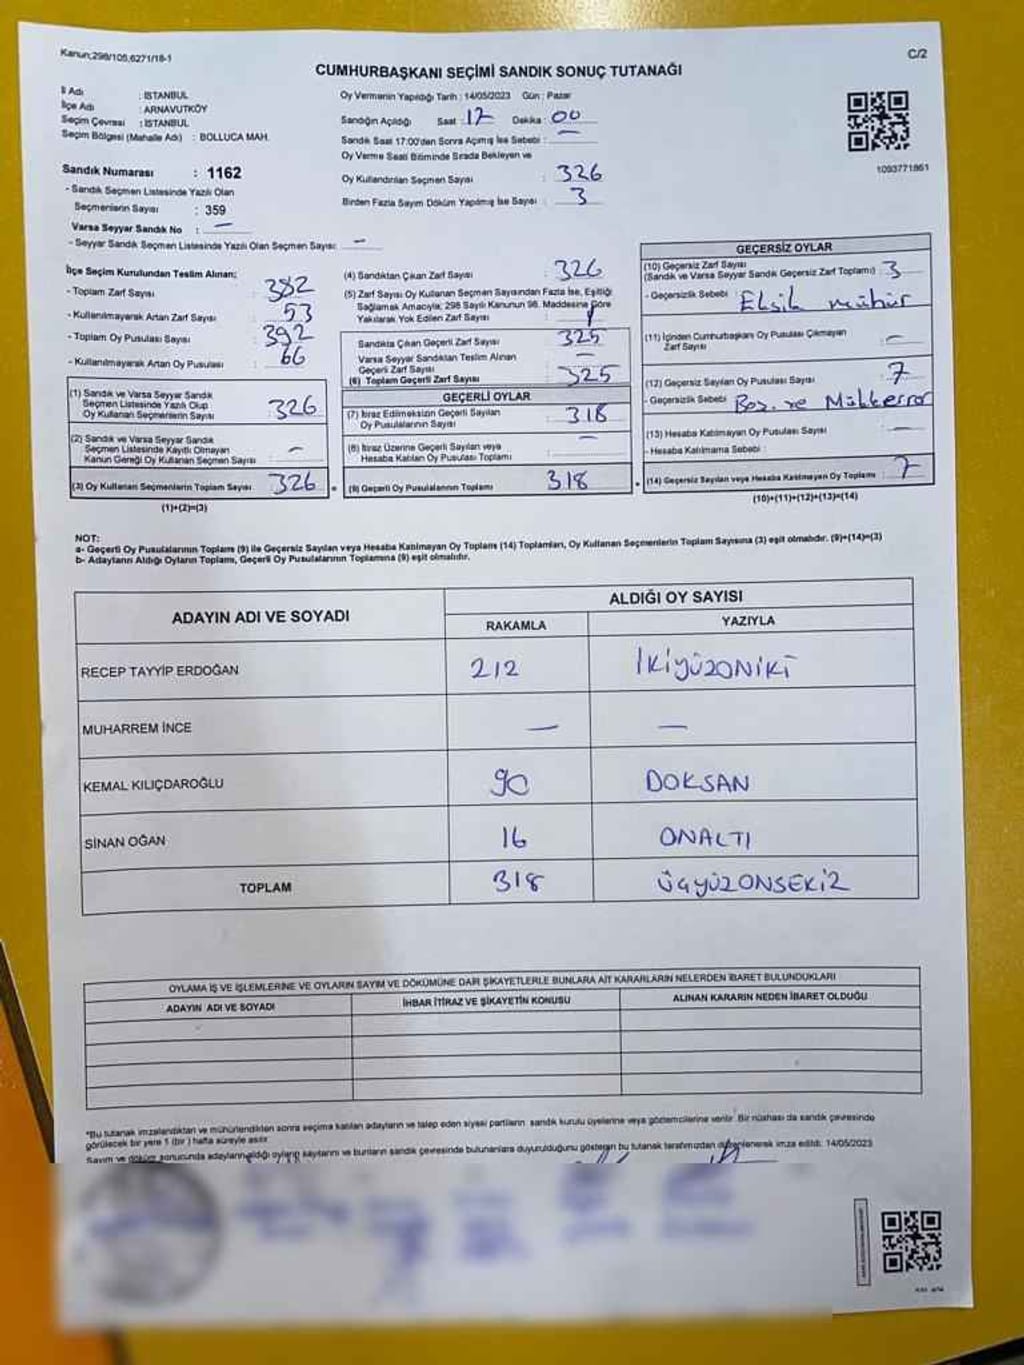 Kanun;298/105,6271/18-1
C/2
CUMHURBAŞKANI SEÇİMİ SANDIK SONUÇ TUTANAĞI
İl Adı : İSTANBUL
İlçe Adı : ARNAVUTKÖY
Seçim Çevrası : İSTANBUL
Seçim Bölgesi (Mahalle Adı) : BOLLUCA MAH.
Oy Vermenin Yapıldığı Tarih : 14/05/2023 Gün : Pazar
Sandığın Açıldığı Saat : 17 Dakika : 00
Sandık Saat 17:00'den Sonra Açımış İse Sebebi : —
Oy Verme Saati Bitiminde Sırada Bekleyen ve
Oy Kullandırılan Seçmen Sayısı : 326
Birden Fazla Sayım Döküm Yapılmış İse Sayısı : 3
1093771861
Sandık Numarası : 1162
- Sandık Seçmen Listesinde Yazılı Olan
Seçmenlerin Sayısı : 359
Varsa Seyyar Sandık No : —
- Seyyar Sandık Seçmen Listesinde Yazılı Olan Seçmen Sayısı: —
İlçe Seçim Kurulundan Teslim Alınan;
- Toplam Zarf Sayısı : 382
- Kullanılmayarak Artan Zarf Sayısı : 53
- Toplam Oy Pusulası Sayısı : 392
- Kullanılmayarak Artan Oy Pusulası : 66
(1) Sandık ve Varsa Seyyar Sandık
Seçmen Listesinde Yazılı Olup
Oy Kullanan Seçmenlerin Sayısı : 326
(2) Sandık ve Varsa Seyyar Sandık
Seçmen Listesinde Kayıtlı Olmayan
Kanun Gereği Oy Kullanan Seçmen Sayısı : —
(3) Oy Kullanan Seçmenlerin Toplam Sayısı : 326
(1)+(2)=(3)
(4) Sandıktan Çıkan Zarf Sayısı : 326
(5) Zarf Sayısı Oy Kullanan Seçmen Sayısından Fazla İse, Eşitliği
Sağlamak Amacıyla; 298 Sayılı Kanunun 98. Maddesine Göre
Yakılarak Yok Edilen Zarf Sayısı :
Sandıkta Çıkan Geçerli Zarf Sayısı : 325
Varsa Seyyar Sandıktan Teslim Alınan
Geçerli Zarf Sayısı : —
(6) Toplam Geçerli Zarf Sayısı : 325
GEÇERLİ OYLAR
(7) İtiraz Edilmeksizin Geçerli Sayılan
Oy Pusulalarının Sayısı : 318
(8) İtiraz Üzerine Geçerli Sayılan veya
Hesaba Katılan Oy Pusulası Toplamı : —
(9) Geçerli Oy Pusulalarının Toplamı : 318
GEÇERSİZ OYLAR
(10) Geçersiz Zarf Sayısı
(Sandık ve Varsa Seyyar Sandık Geçersiz Zarf Toplamı) : 3
- Geçersizlik Sebebi : Eksik mühür
(11) İçinden Cumhurbaşkanı Oy Pusulası Çıkmayan
Zarf Sayısı : —
(12) Geçersiz Sayılan Oy Pusulası Sayısı : 7
- Geçersizlik Sebebi : Boş ve Mükerrer
(13) Hesaba Katılmayan Oy Pusulası Sayısı : —
- Hesaba Katılmama Sebebi :
(14) Geçersiz Sayılan veya Hesaba Katılmayan Oy Toplamı : 7
(10)+(11)+(12)+(13)=(14)
NOT:
a- Geçerli Oy Pusulalarının Toplamı (9) ile Geçersiz Sayılan veya Hesaba Katılmayan Oy Toplamı (14) Toplamları, Oy Kullanan Seçmenlerin Toplam Sayısına (3) eşit olmalıdır. (9)+(14)=(3)
b- Adayların Aldığı Oyların Toplamı, Geçerli Oy Pusulalarının Toplamına (9) eşit olmalıdır.
ADAYIN ADI VE SOYADI
ALDIĞI OY SAYISI
RAKAMLA YAZIYLA
RECEP TAYYİP ERDOĞAN 212 İKİYÜZONİKİ
MUHARREM İNCE — —
KEMAL KILIÇDAROĞLU 90 DOKSAN
SİNAN OĞAN 16 ONALTI
TOPLAM 318 ÜÇYÜZONSEKİZ
OYLAMA İŞ VE İŞLEMLERİNE VE OYLARIN SAYIM VE DÖKÜMÜNE DAİR ŞİKAYETLERLE BUNLARA AİT KARARLARIN NELERDEN İBARET BULUNDUKLARI
ADAYIN ADI VE SOYADI İHBAR İTİRAZ VE ŞİKAYETİN KONUSU ALINAN KARARIN NEDEN İBARET OLDUĞU
*Bu tutanak imzalandıktan ve mühürlendikten sonra seçime katılan adayların ve talep eden siyasi partilerin sandık kurulu üyelerine veya gözlemcilerine verilir. Bir nüshası da sandık çevresinde
görülecek bir yere 1 (bir) hafta süreyle asılır.
Sayım ve döküm sonucunda adayların aldığı oyların sayılarını ve bunların sandık çevresinde bulunanlara duyurulduğunu gösteren bu tutanak tarafımızdan düzenlenerek imza edildi. 14/05/2023